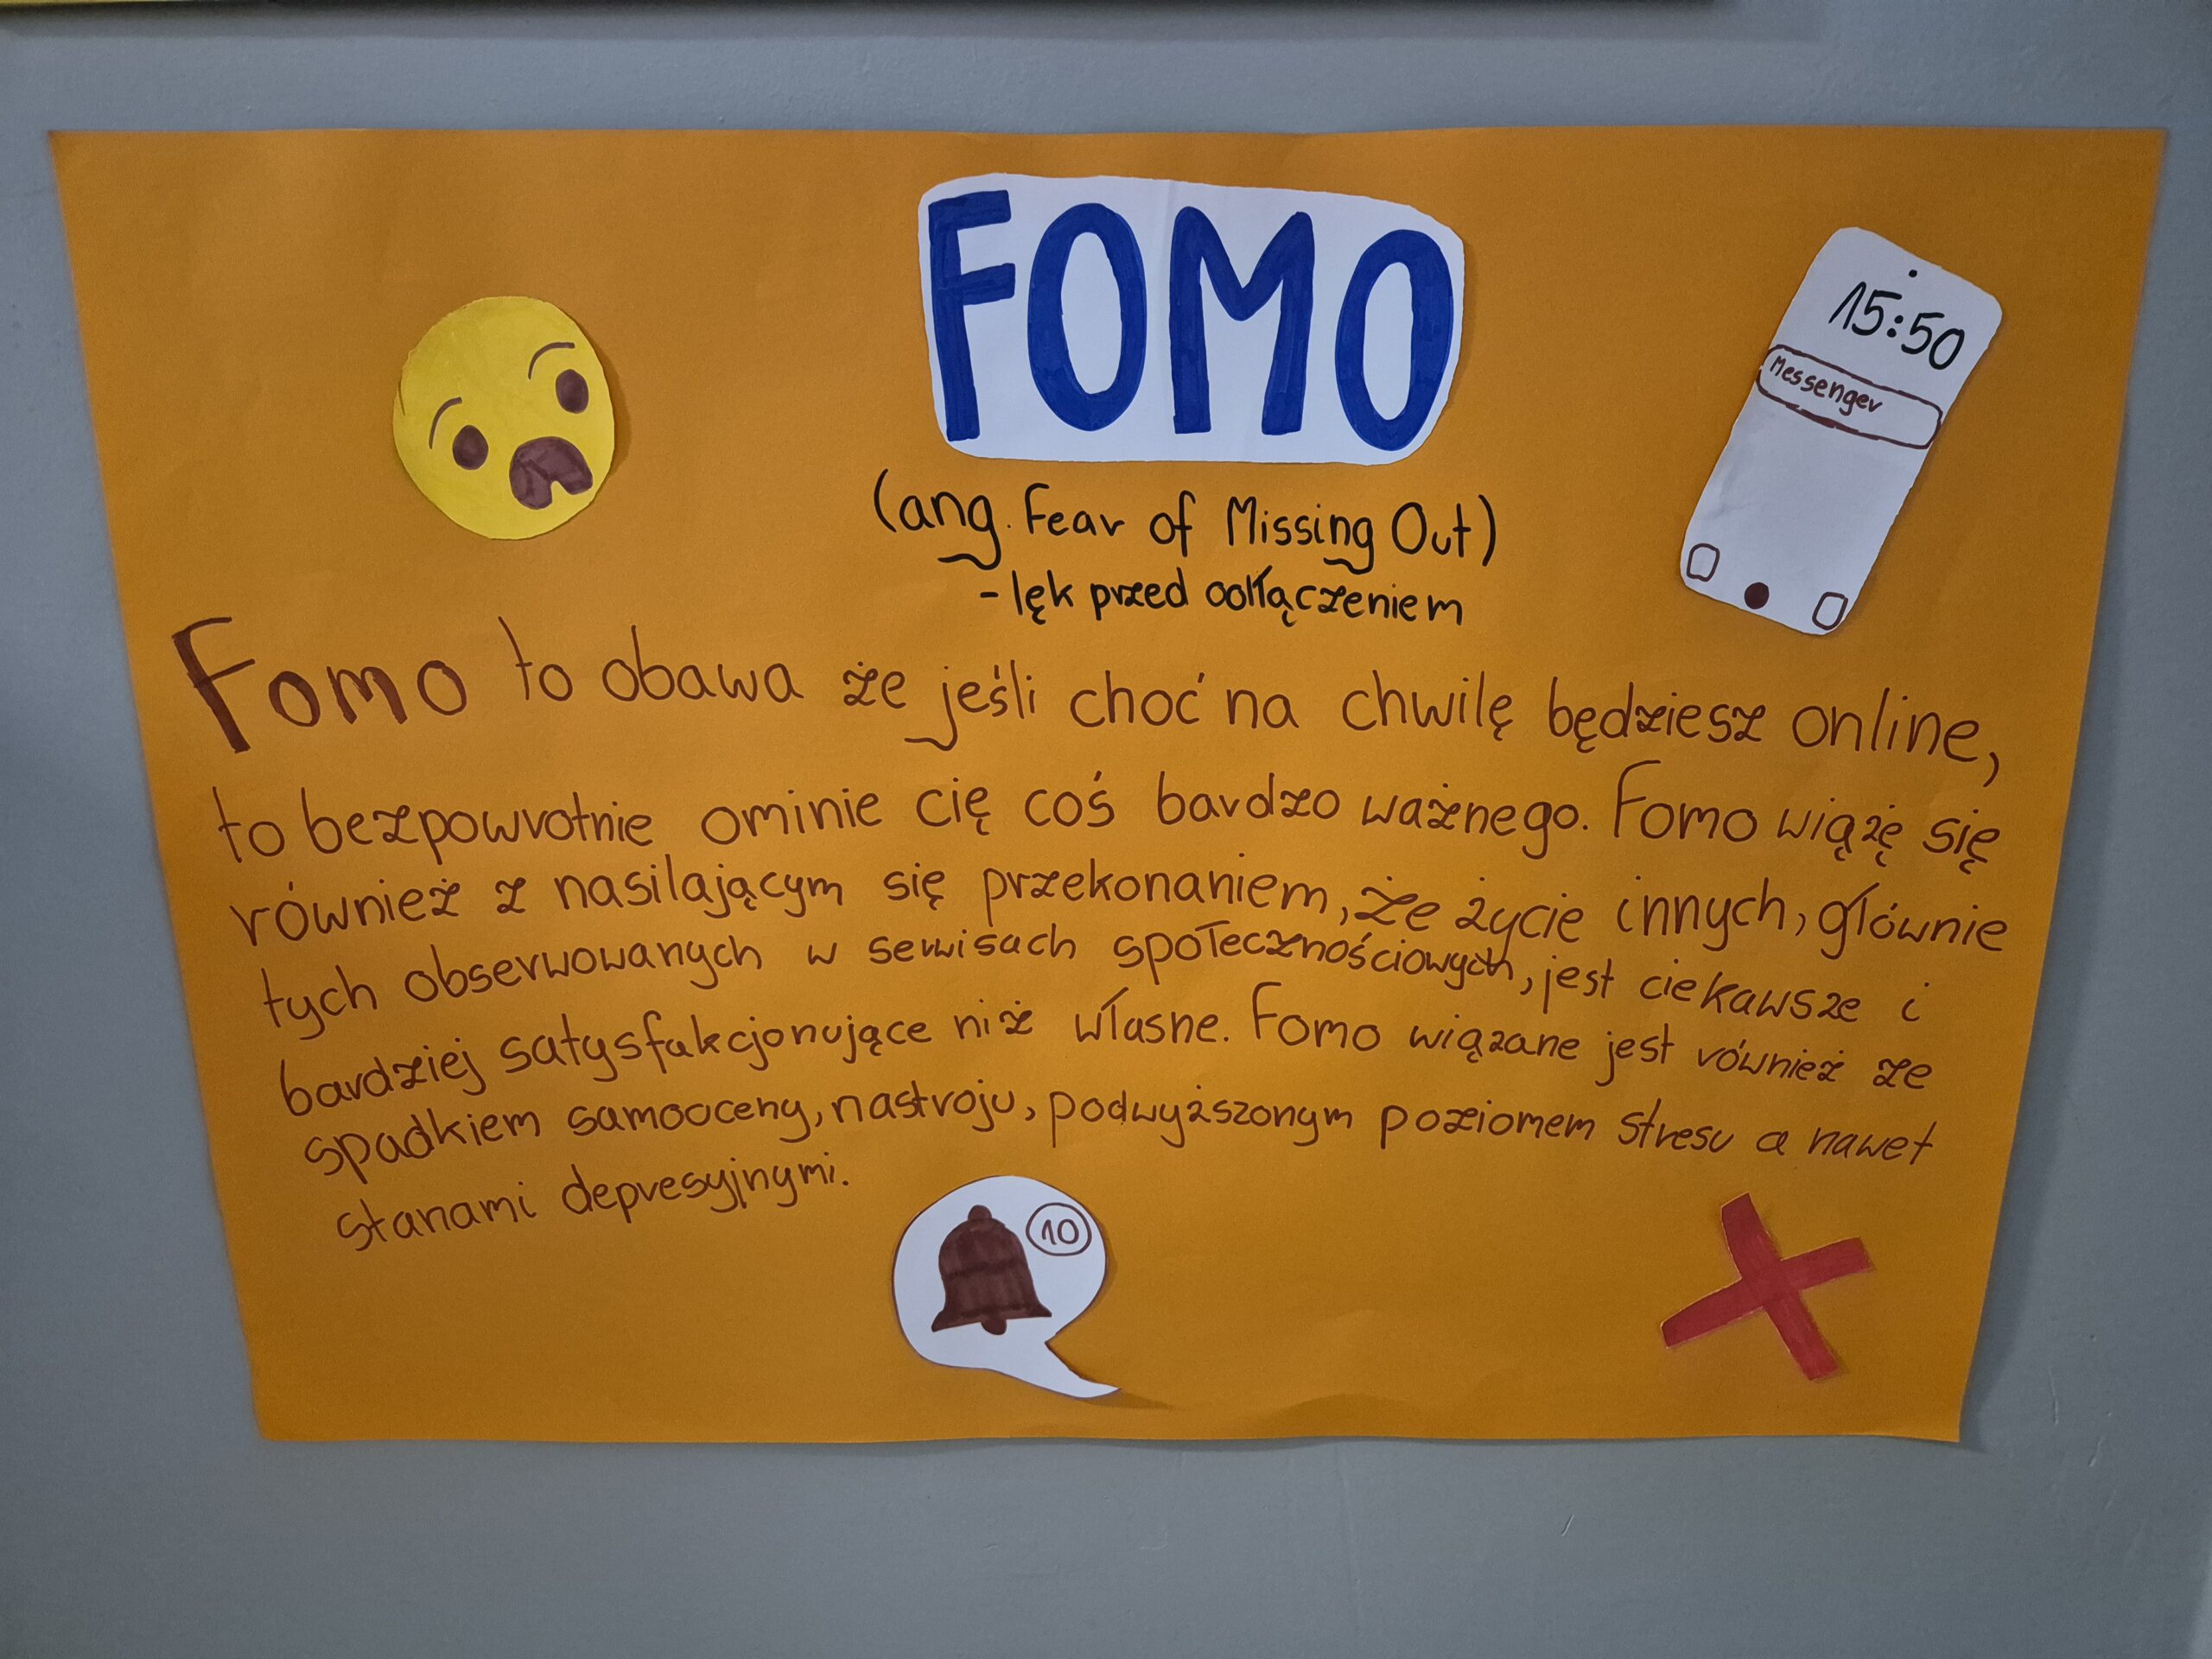 FOMO
15:50
Messenger
(ang. Fear of Missing Out)
- lęk przed odłączeniem
Fomo to obawa że jeśli choć na chwilę będziesz online,
to bezpowrotnie ominie cię coś bardzo ważnego. Fomo wiążę się
również z nasilającym się przekonaniem, że życie innych, głównie
tych obserwowanych w serwisach społecznościowych, jest ciekawsze i
bardziej satysfakcjonujące niż własne. Fomo wiązane jest również ze
spadkiem samooceny, nastroju, podwyższonym poziomem stresu a nawet
stanami depresyjnymi.
10